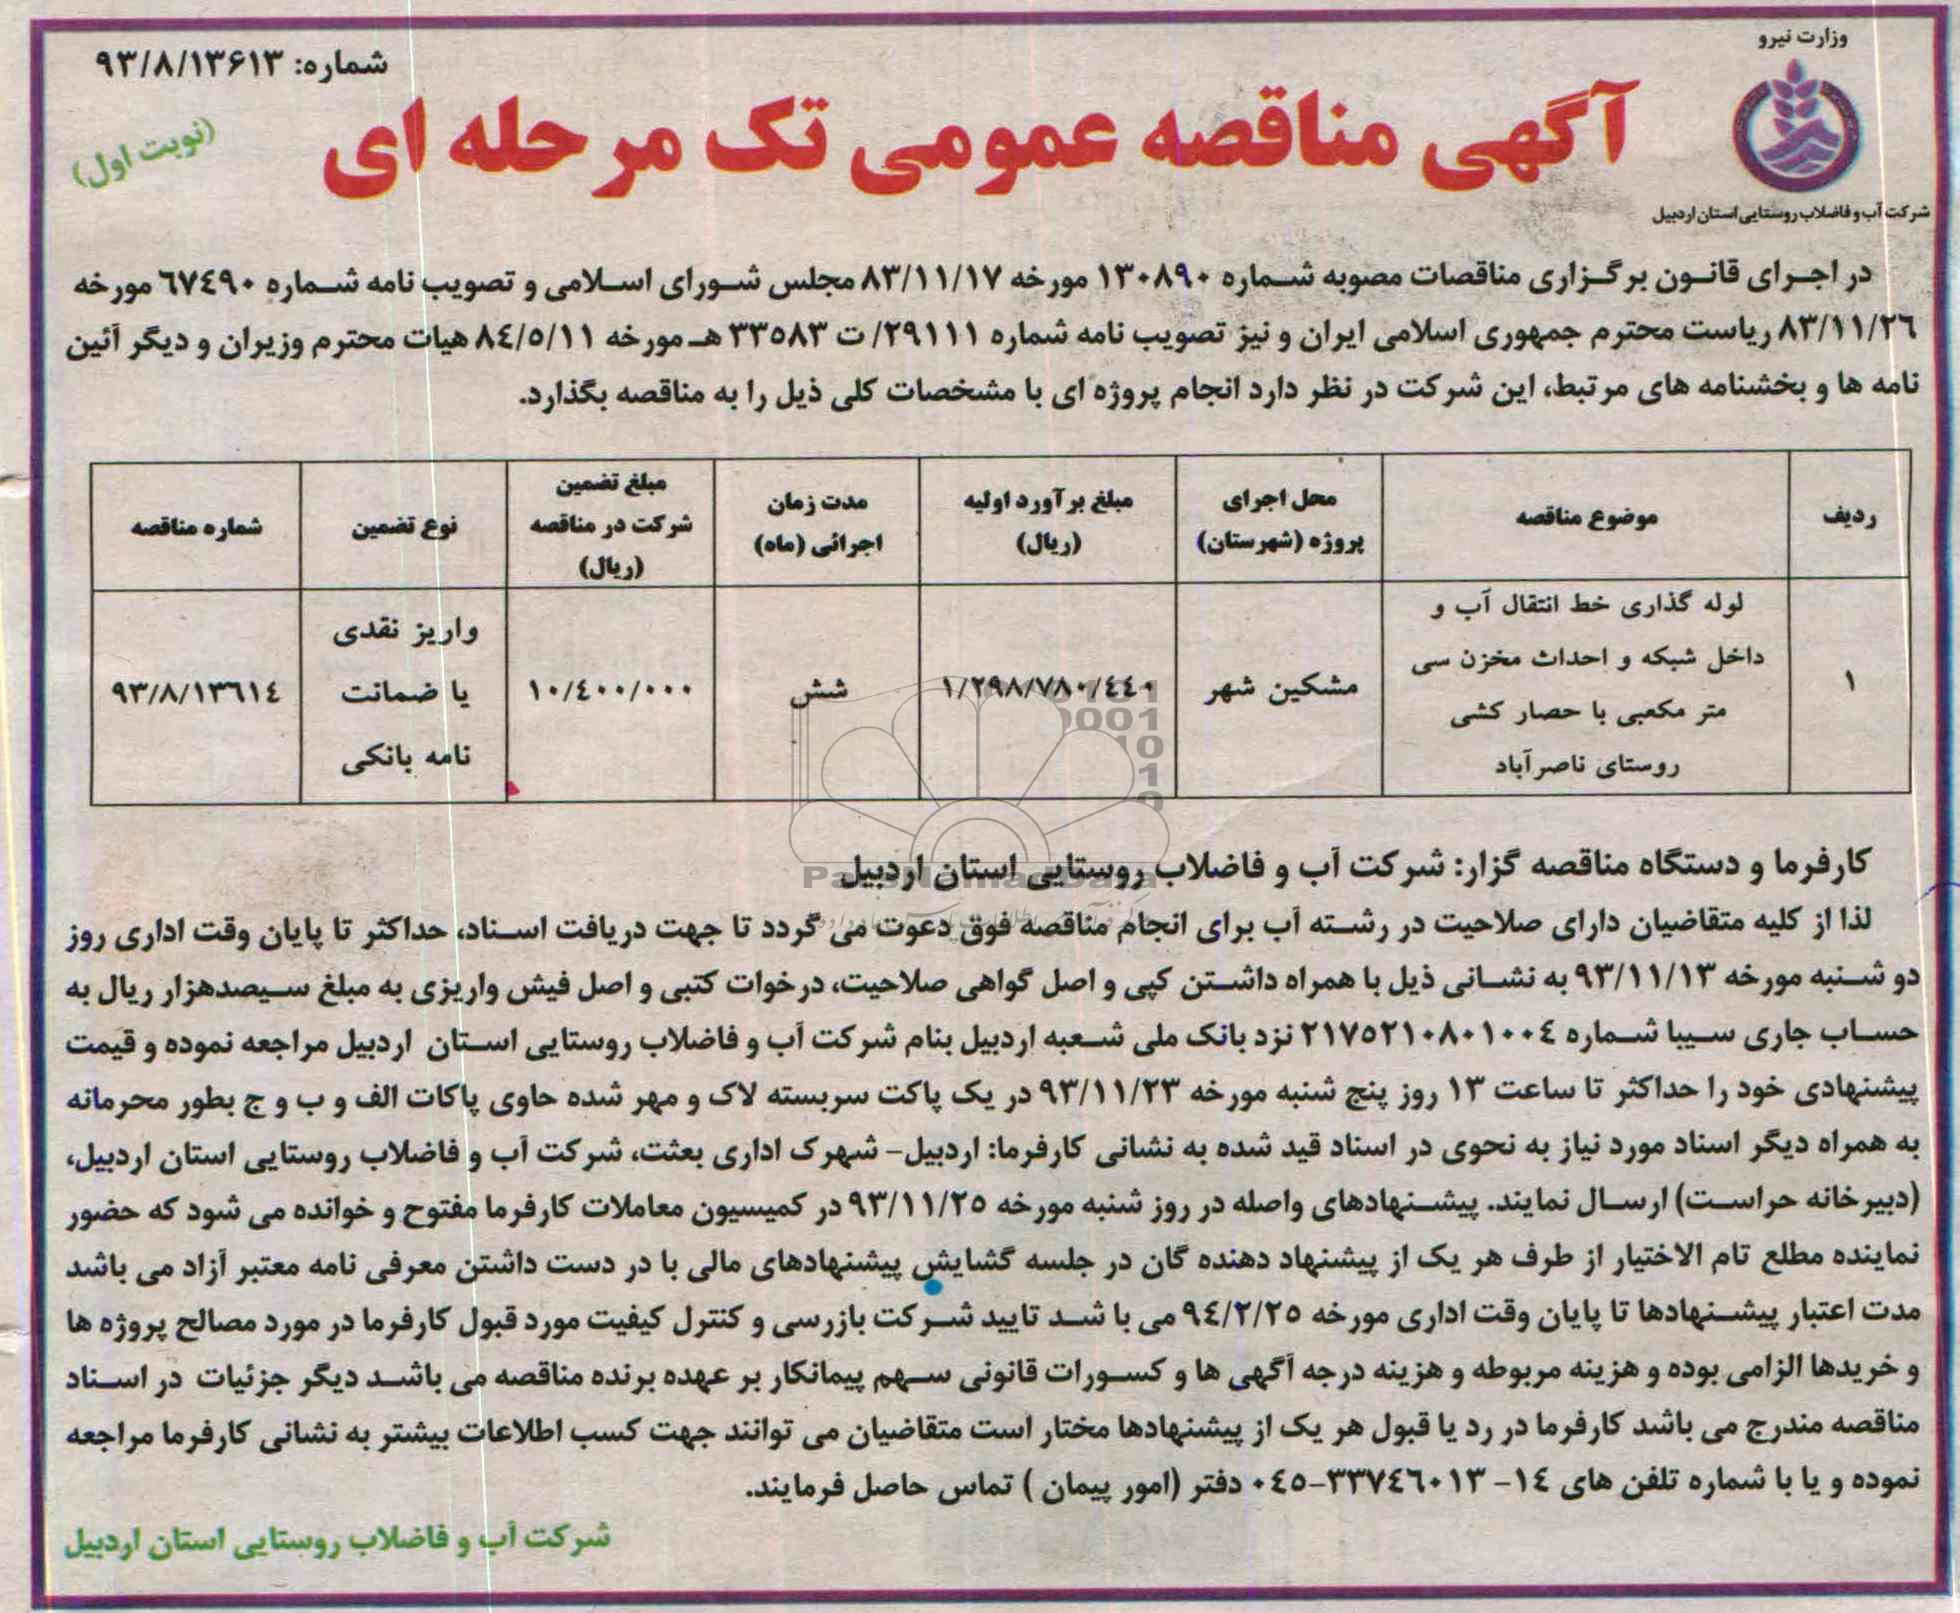 وزارت نیرو
شرکت آب و فاضلاب روستایی استان اردبیل
شماره: ۹۳/۸/۱۳۶۱۳
(نوبت اول)
آگهی مناقصه عمومی تک مرحله ای
در اجرای قانون برگزاری مناقصات مصوبه شماره ۱۳۰۸۹۰ مورخه ۸۳/۱۱/۱۷ مجلس شورای اسلامی و تصویب نامه شماره ۶۷۴۹۰ مورخه
۸۳/۱۱/۲۶ ریاست محترم جمهوری اسلامی ایران و نیز تصویب نامه شماره ۲۹۱۱۱/ ت ۳۳۵۸۳ هـ مورخه ۸۴/۵/۱۱ هیات محترم وزیران و دیگر آئین
نامه ها و بخشنامه های مرتبط، این شرکت در نظر دارد انجام پروژه ای با مشخصات کلی ذیل را به مناقصه بگذارد.
ردیف
موضوع مناقصه
محل اجرای
پروژه (شهرستان)
مبلغ برآورد اولیه
(ریال)
مدت زمان
اجرائی (ماه)
مبلغ تضمین
شرکت در مناقصه
(ریال)
نوع تضمین
شماره مناقصه
۱
لوله گذاری خط انتقال آب و
داخل شبکه و احداث مخزن سی
متر مکعبی با حصار کشی
روستای ناصرآباد
مشکین شهر
۱/۲۹۸/۷۸۰/۴۴۰
شش
۱۰/۴۰۰/۰۰۰
واریز نقدی
یا ضمانت
نامه بانکی
۹۳/۸/۱۳۶۱۴
کارفرما و دستگاه مناقصه گزار: شرکت آب و فاضلاب روستایی استان اردبیل
ParsNamadData
لذا از کلیه متقاضیان دارای صلاحیت در رشته آب برای انجام مناقصه فوق دعوت می گردد تا جهت دریافت اسناد، حداکثر تا پایان وقت اداری روز
دو شنبه مورخه ۹۳/۱۱/۱۳ به نشانی ذیل با همراه داشتن کپی و اصل گواهی صلاحیت، درخوات کتبی و اصل فیش واریزی به مبلغ سیصدهزار ریال به
حساب جاری سیبا شماره ۲۱۷۵۲۱۰۸۰۱۰۰۴ نزد بانک ملی شعبه اردبیل بنام شرکت آب و فاضلاب روستایی استان اردبیل مراجعه نموده و قیمت
پیشنهادی خود را حداکثر تا ساعت ۱۳ روز پنج شنبه مورخه ۹۳/۱۱/۲۳ در یک پاکت سربسته لاک و مهر شده حاوی پاکات الف و ب و ج بطور محرمانه
به همراه دیگر اسناد مورد نیاز به نحوی در اسناد قید شده به نشانی کارفرما: اردبیل- شهرک اداری بعثت، شرکت آب و فاضلاب روستایی استان اردبیل،
(دبیرخانه حراست) ارسال نمایند. پیشنهادهای واصله در روز شنبه مورخه ۹۳/۱۱/۲۵ در کمیسیون معاملات کارفرما مفتوح و خوانده می شود که حضور
نماینده مطلع تام الاختیار از طرف هر یک از پیشنهاد دهنده گان در جلسه گشایش پیشنهادهای مالی با در دست داشتن معرفی نامه معتبر آزاد می باشد
مدت اعتبار پیشنهادها تا پایان وقت اداری مورخه ۹۴/۲/۲۵ می با شد تایید شرکت بازرسی و کنترل کیفیت مورد قبول کارفرما در مورد مصالح پروژه ها
و خریدها الزامی بوده و هزینه مربوطه و هزینه درجه آگهی ها و کسورات قانونی سهم پیمانکار بر عهده برنده مناقصه می باشد دیگر جزئیات در اسناد
مناقصه مندرج می باشد کارفرما در رد یا قبول هر یک از پیشنهادها مختار است متقاضیان می توانند جهت کسب اطلاعات بیشتر به نشانی کارفرما مراجعه
نموده و یا با شماره تلفن های ۱۴- ۳۳۷۴۶۰۱۳-۰۴۵ دفتر (امور پیمان ) تماس حاصل فرمایند.
شرکت آب و فاضلاب روستایی استان اردبیل